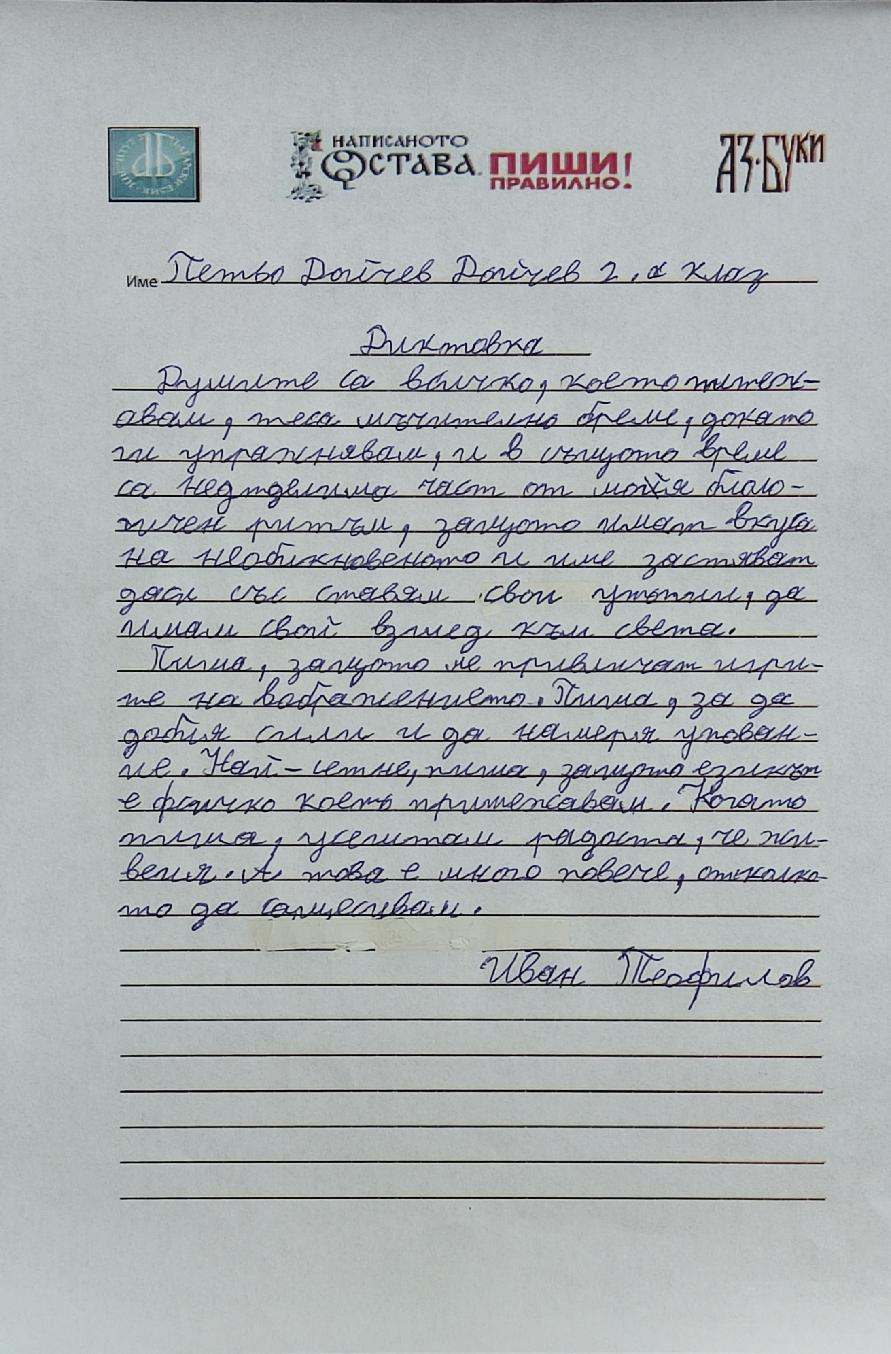 НАПИСАНОТО
ОСТАВА. ПИШИ
ПРАВИЛНО!
АЗ·БУКИ
Име Петьо Дойчев Дойчев 2. а клаз
Диктовка
Думите са всичко, което притеж-
авам, теса мъчително бреме, докато
ги упражнявам, и в същото време
са неделима част от моя биоло-
гичен ритъм, защото имат вкуса
на необикновеното и ме заставят
даси със ставям свои утопии, да
имам свой взглед към света.
Пиша, защото ме привличат игри-
те на вображението. Пиша, за да
добия сили и да намеря упован-
ие. Най-сетне, пиша, защото езикът
е фсичко което притежавам. Когато
пиша, усещам радоста, че жи-
вея. А това е много повече, отколко-
то да саществувам.
Иван Теофилов